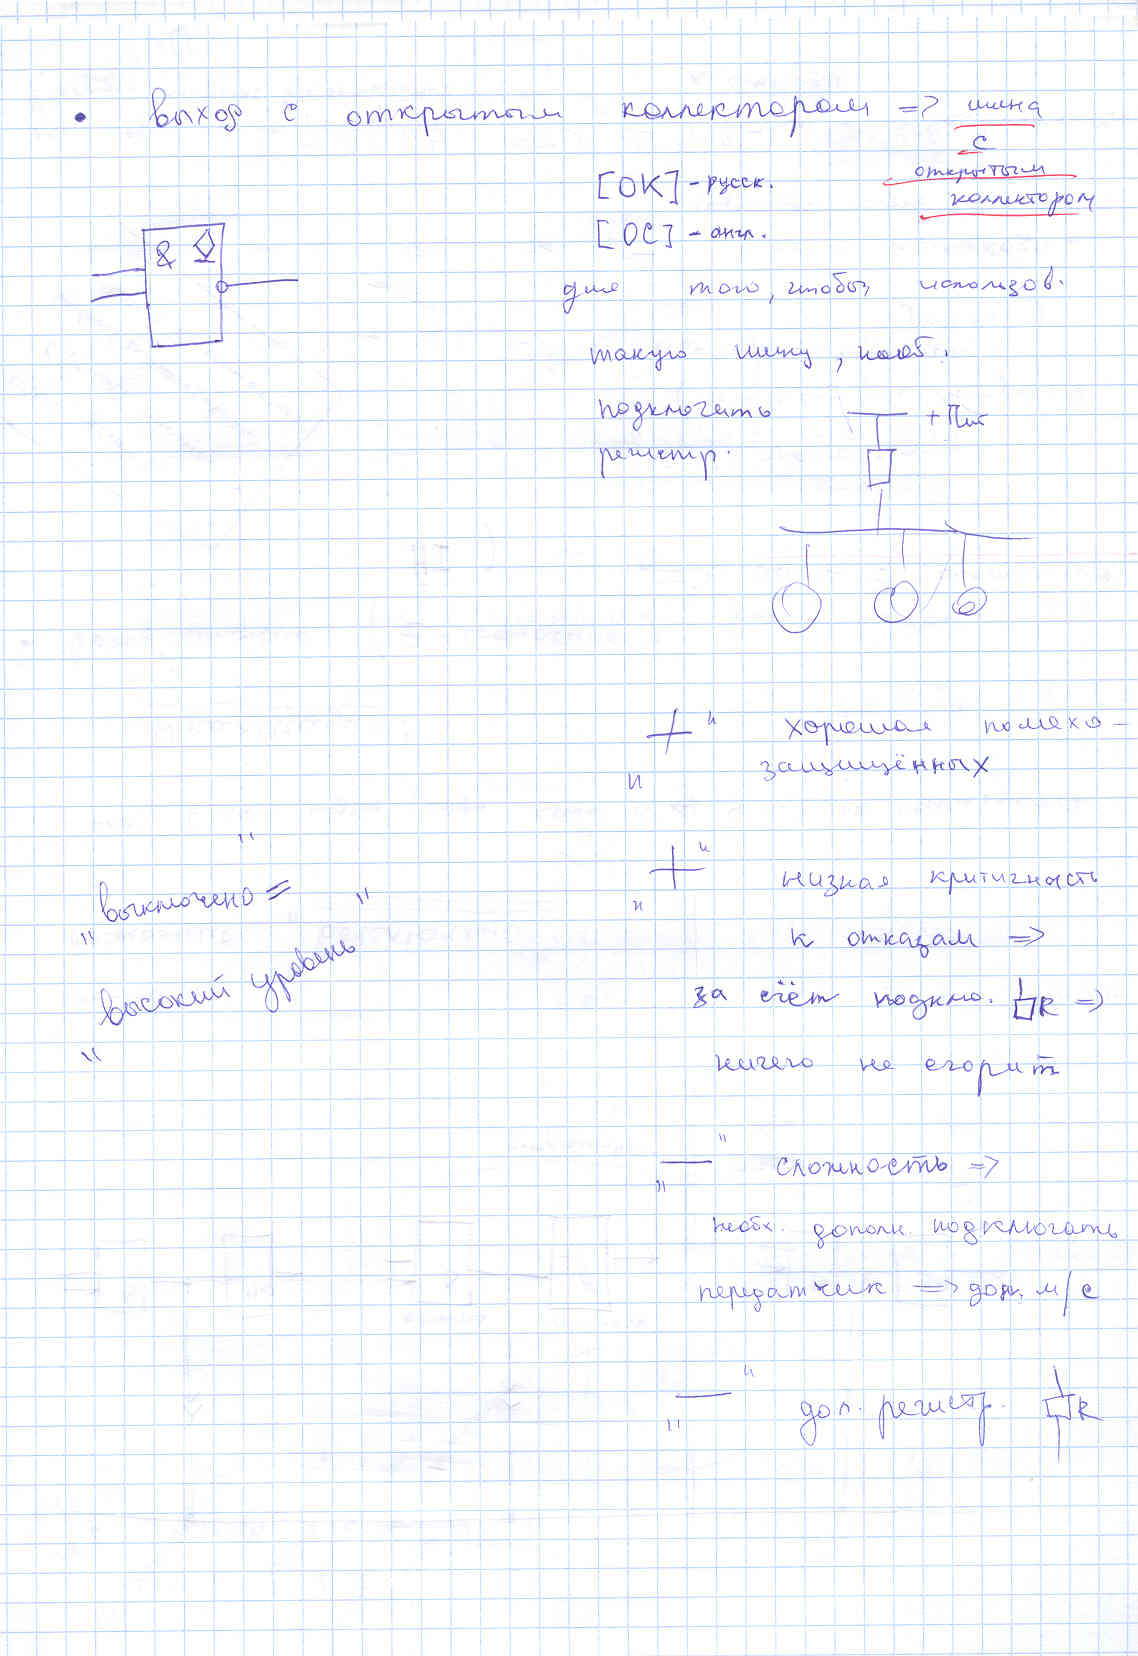 • выход с открытым коллектором => шина
с
открытым
коллектором
[ОК] - русск.
[OC] - англ.
& 
для того, чтобы использов.
такую шину, необ.
подключать
регистр.
+ Пит
"+" хорошая помехо-
защищённых
"+" низкая критичность
к отказам =>
за счёт подклю. R =>
ничего не сгорит
"выключено" =
"высокий уровень"
"—" сложность =>
необх. дополн. подключать
передатчик => доп. м/с
"—" доп. регистр. R